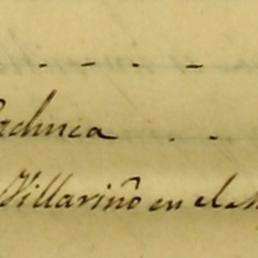 Pachuca . .
Villariño en el